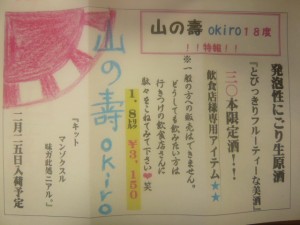 山の壽 okiro18度
!!特報!!
発泡性にごり生原酒
『とびっきりフルーティーな美酒』
三〇本限定酒!!!
飲食店様専用アイテム★★
※一般の方への販売はできません。
どうしても飲みたい方は
行きつけの飲食店さんに
駄々をこねてみて下さい♥笑
1.8L ¥3,150
山の壽 okiro
『キット
マンゾクスル
味ガ此処ニアル。』
二月二五日入荷予定